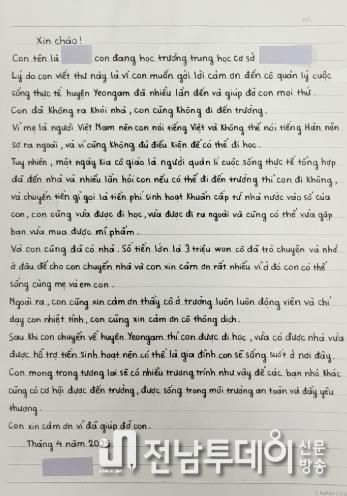 Xin chào!
Con tên là con đang học trường trung học cơ sở
Lý do con viết thư này là vì con muốn gởi lời cảm ơn đến cô quản lý cuộc
sống thực tế huyện Yeongam đã nhiều lần đến và giúp đỡ con mọi thứ.
Con đã không ra khỏi nhà, con cũng không đi đến trường.
Vì mẹ là người Việt Nam nên con nói tiếng Việt và không thể nói tiếng Hàn nên
sợ ra ngoài, và vì cũng không đủ điều kiện để có thể đi học.
Tuy nhiên, một ngày kia cô giáo là người quản lí cuộc sống thực tế tổng hợp
đã đến nhà và nhiều lần hỏi con nếu có thể đi đến trường thì con đi không,
và chuyển tiền gì gọi là tiền phí sinh hoạt khẩn cấp từ nhà nước vào sổ của
con, con cũng vừa được đi học, vừa được đi ra ngoài và cũng có thể vừa gặp
bạn vừa mua được mĩ phẩm.
Và con cũng đã có nhà. Số tiền lớn là 3 triệu won cô đã trò chuyện và nhờ
ở đâu để cho con chuyển nhà và con xin cảm ơn rất nhiều vì ở đó con có thể
sống cùng mẹ và em con.
Ngoài ra, con cũng xin cảm ơn thầy cô ở trường luôn luôn động viên và chỉ
dạy con nhiệt tình, con cũng xin cảm ơn cô thông dịch.
Sau khi con chuyển về huyện Yeongam thì con được đi học, vừa có được nhà vừa
được hỗ trợ tiền sinh hoạt nên có thể là gia đình con sẽ sống suốt ở nơi đây.
Con mong trong tương lai sẽ có nhiều trương trình như vậy để các bạn nhỏ khác
cũng có cơ hội được đến trường, được sống trong môi trường an toàn và đầy yêu
thương.
Con xin cảm ơn vì đã giúp đỡ con.
Tháng 4 năm
전남투데이 신문
방송